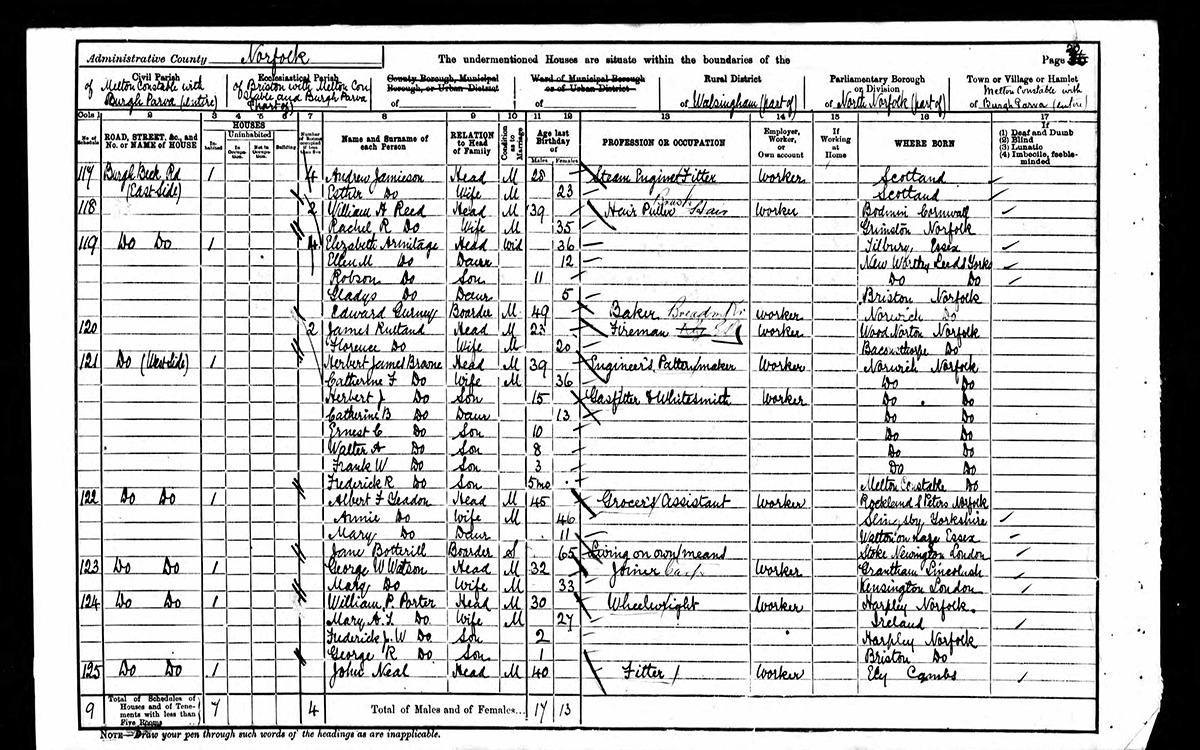 Administrative County Norfolk The undermentioned Houses are situate within the boundaries of the Page 20
Civil Parish Ecclesiastical Parish County Borough, Municipal Borough, or Urban District Ward of Municipal Borough or of Urban District Rural District Parliamentary Borough or Division Town or Village or Hamlet
of Melton Constable with Burgh Parva (entire) of Briston with Melton Constable and Burgh Parva (part of) of of of Walsingham (part of) of North Norfolk (part of) Melton Constable with of Burgh Parva (entire)
Cols 1 2 3 4 5 6 7 8 9 10 11 12 13 14 15 16 17
No. of Schedule ROAD, STREET, &c., and No. or NAME of HOUSE HOUSES Inhabited Uninhabited In Occupation Not in Occupation Building Number of Rooms occupied if less than five Name and Surname of each Person RELATION to Head of Family Condition as to Marriage Age last Birthday of Males Females PROFESSION OR OCCUPATION Employer, Worker, or Own account If Working at Home WHERE BORN If (1) Deaf and Dumb (2) Blind (3) Lunatic (4) Imbecile, feeble-minded
117 Burgh Beck Rd 1 4 Andrew Jamieson Head M 28 Steam Engine Fitter Worker Scotland
(East Side) Esther Do Wife M 23 Scotland
118 2 William H Reed Head M 39 Hair Puller Brush Worker Bodmin Cornwall
Rachel R Do Wife M 35 Grimston Norfolk
119 Do Do 1 4 Elizabeth Armitage Head Wid 36 Tilbury, Essex
Ellen M Do Daur 12 New Wortley Leeds Yorks
Robson Do Son 11 Do Do
Gladys Do Daur 5 Briston Norfolk
Edward Gurney Boarder M 49 Baker Bread Worker Norwich Do
120 2 James Rutland Head M 23 Fireman Worker Wood Norton Norfolk
Florence Do Wife M 20 Baconsthorpe Do
121 Do (West Side) 1 Herbert James Browne Head M 39 Engineer's Patternmaker Worker Norwich Norfolk
Catherine F Do Wife M 36 Do Do
Herbert J Do Son 15 Gasfitter & Whitesmith Worker Do Do
Catherine B Do Daur 13 Do Do
Ernest C Do Son 10 Do Do
Walter A Do Son 8 Do Do
Frank W Do Son 3 Do Do
Frederick R Do Son 5 mo Melton Constable Do
122 Do Do 1 Albert F Head M 45 Grocer's Assistant Worker Rockland St Peters Norfolk
Annie Do Wife M 46 Slingsby Yorkshire
Mary Do Daur 11 Walton on Naze Essex
Jane Botterill Boarder S 65 Living on own means Stoke Newington London
123 Do Do 1 George W Watson Head M 32 Joiner Worker Grantham Lincolnsh
Mary Do Wife M 33 Kensington London
124 Do Do 1 William P. Porter Head M 30 Wheelwright Worker Harpley Norfolk
Mary A. L Do Wife M 27 Ireland
Frederick J. W Do Son 2 Harpley Norfolk
George R Do Son 1 Briston Do
125 Do Do 1 John Neal Head M 40 Fitter Worker Ely Cambs
9 Total of Schedules of Houses and of Tenements with less than Five Rooms 7 4 Total of Males and of Females... 17 13
NOTE—Draw your pen through such words of the headings as are inapplicable.